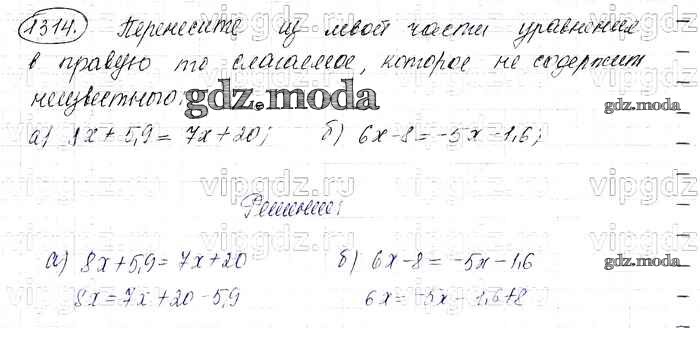 1314. Перенесите из левой части уравнения
в правую то слагаемое, которое не содержит
неизвестного:
gdz.moda
gdz.moda
а) 8x + 5,9 = 7x + 20; б) 6x - 8 = -5x - 1,6;
vipgdz.ru vipgdz.ru vipgdz
Решение:
а) 8x + 5,9 = 7x + 20 б) 6x - 8 = -5x - 1,6
gdz.moda
8x = 7x + 20 - 5,9 6x = -5x - 1,6 + 8
vipgdz.ru vipgdz.ru vipgdz